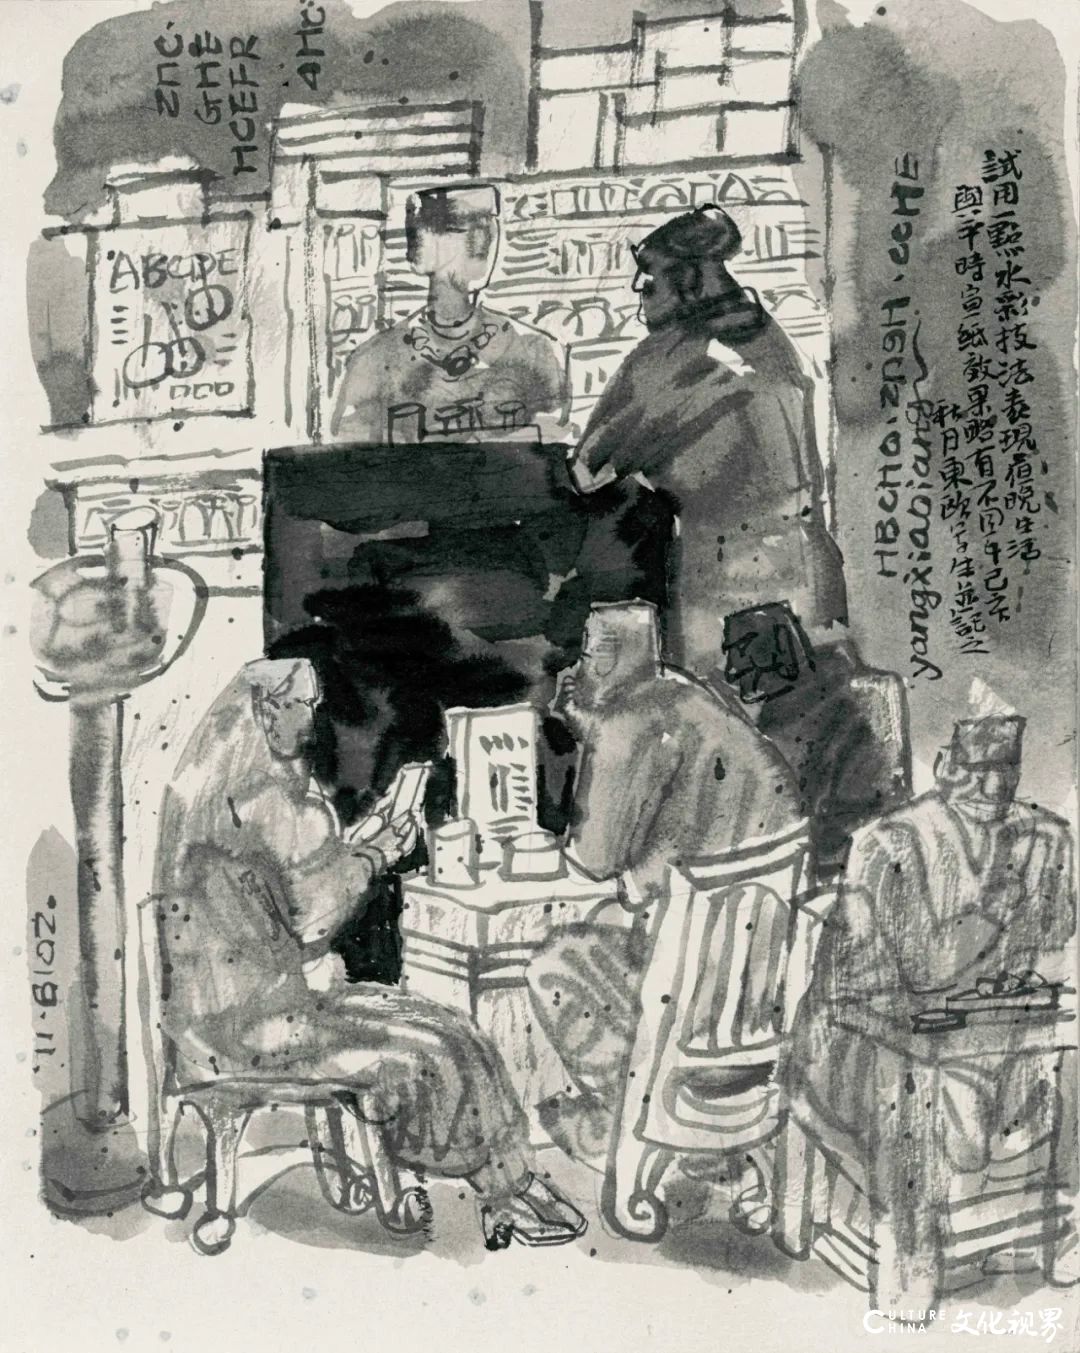 ZHC.
GHE
HCEFR
4HC.
ABCDE
試用一點水彩技法表現夜晚生活
與平時宣紙效果略有不同
秋月東歐寫生並記之
HBCHO.ZPGH.CCHE
yangxiaobiang
11.B10Z.
CULTURE
CHINA
文化视界